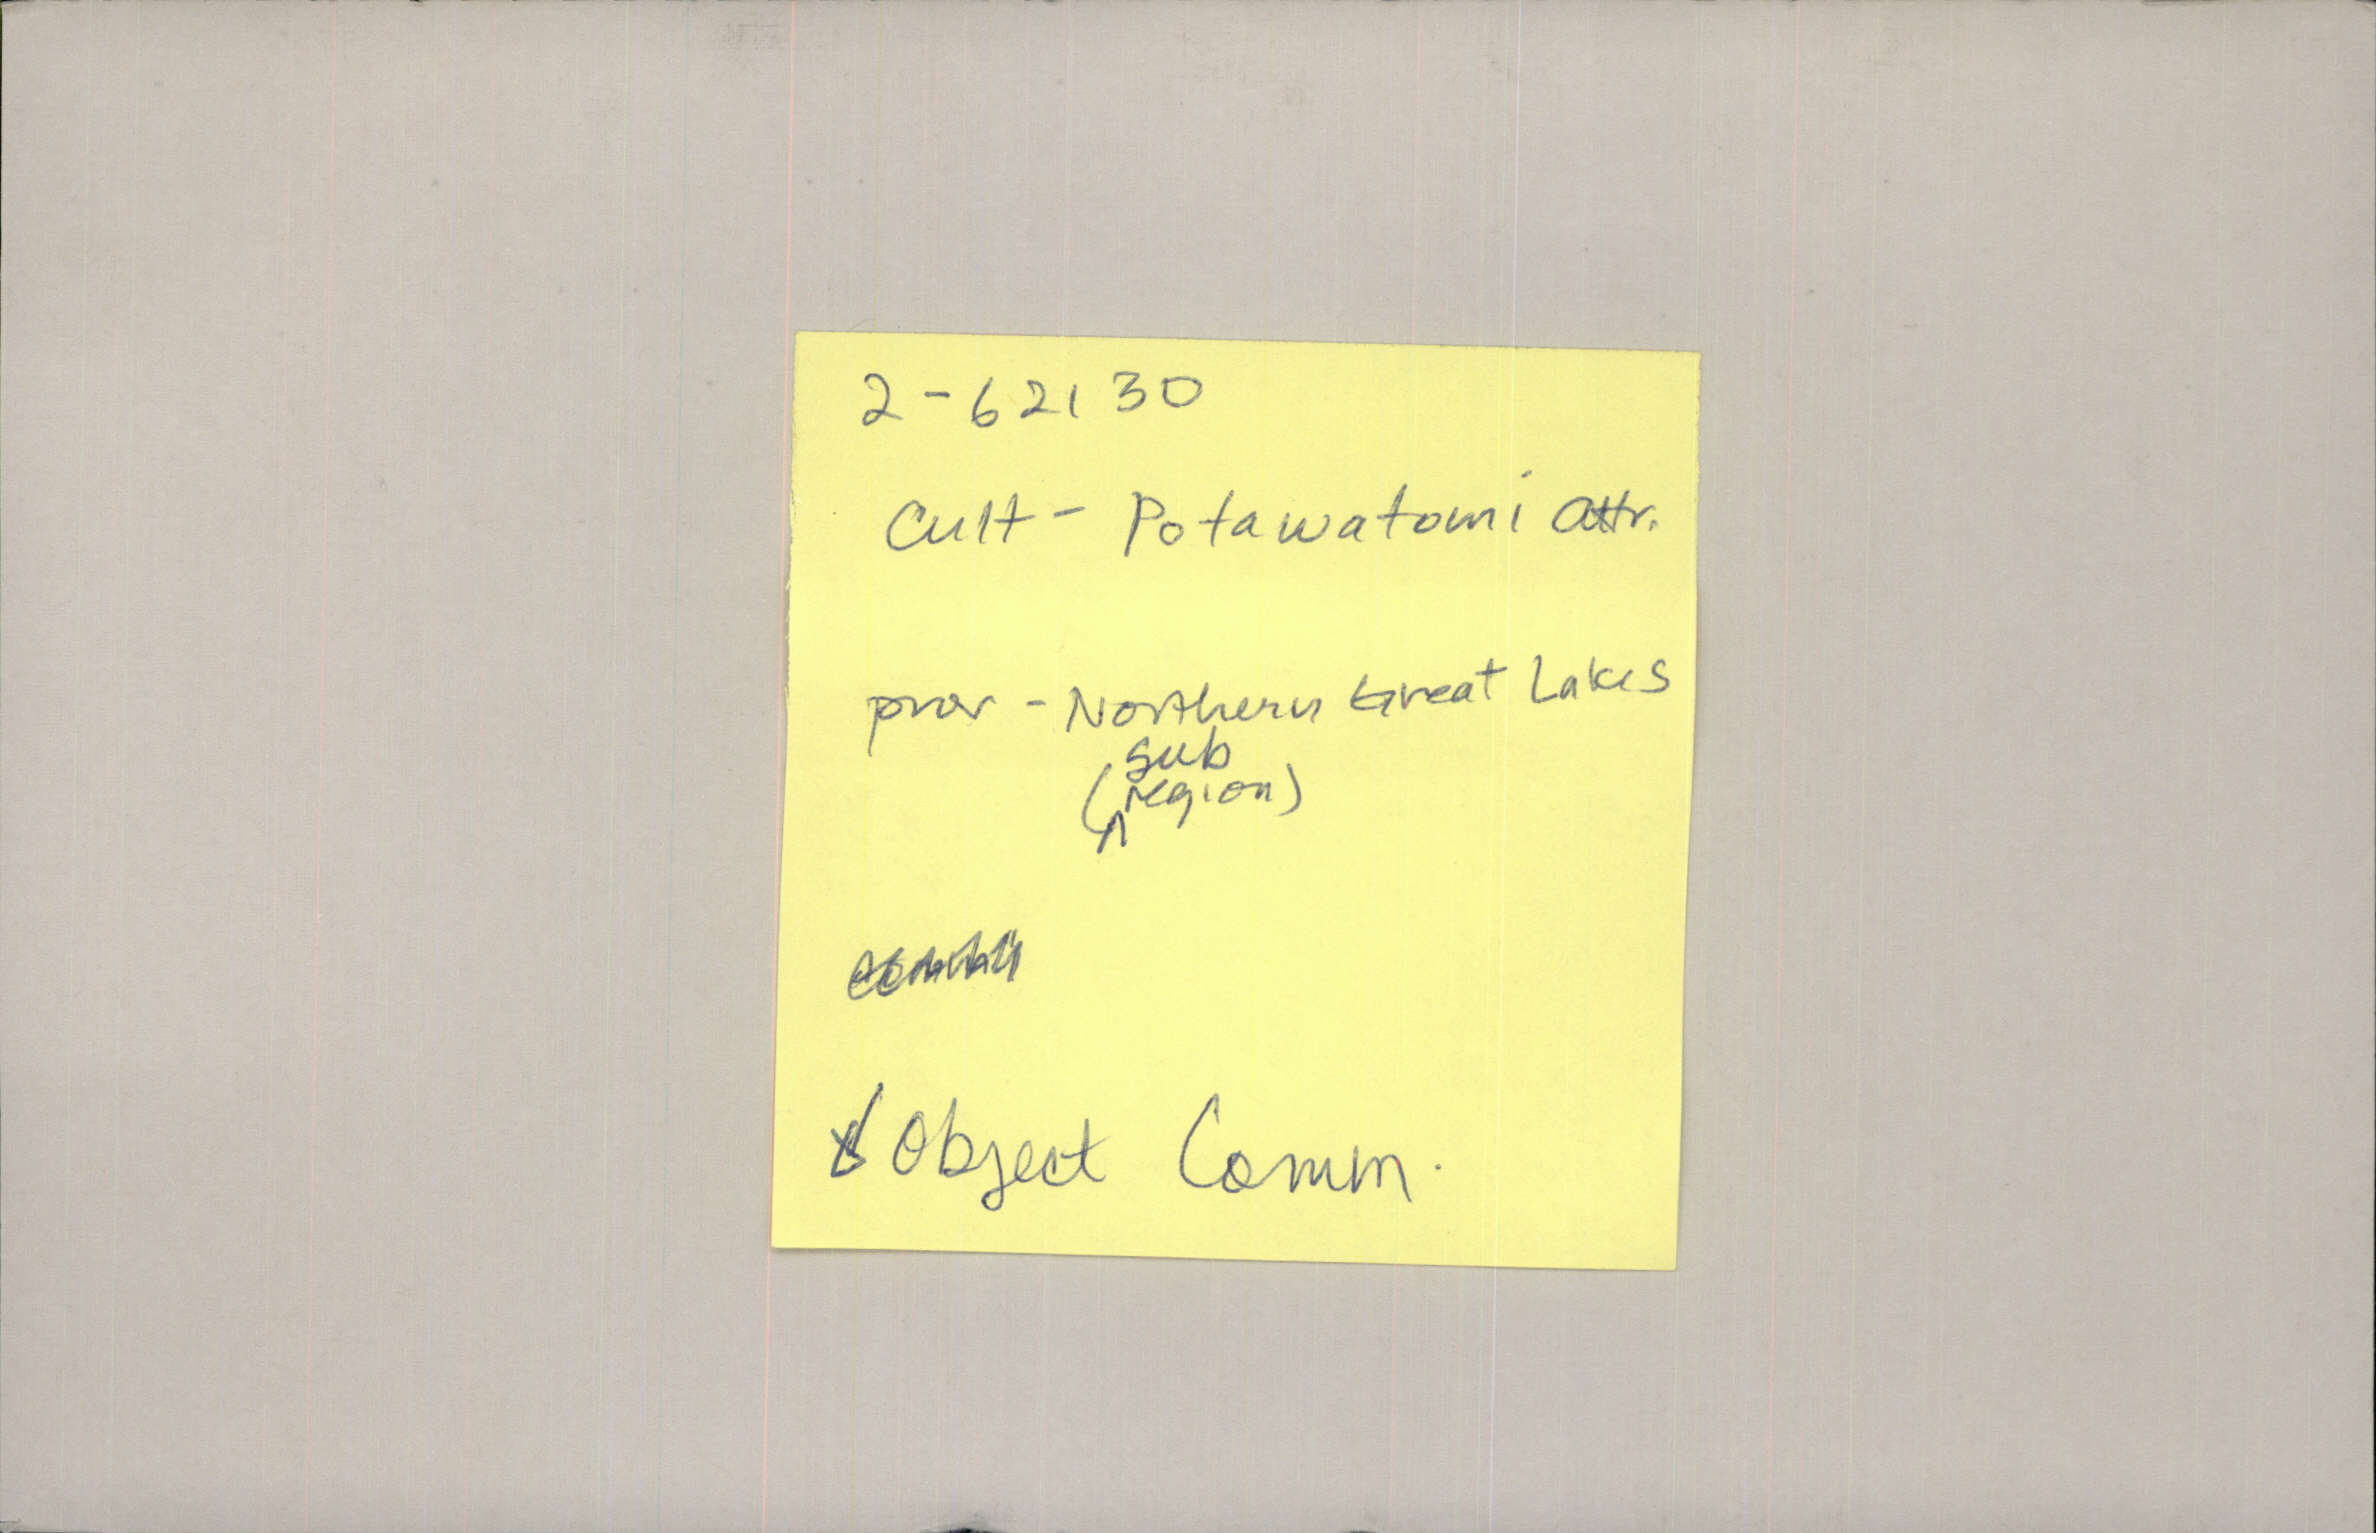 2-62130
Cult - Potawatomi attr.
prov - Northern Great Lakes
(sub region)
Object Comm.